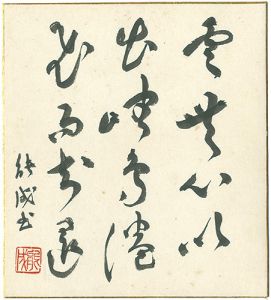 雲無心以
出岫鳥倦
飛而知還
能成書